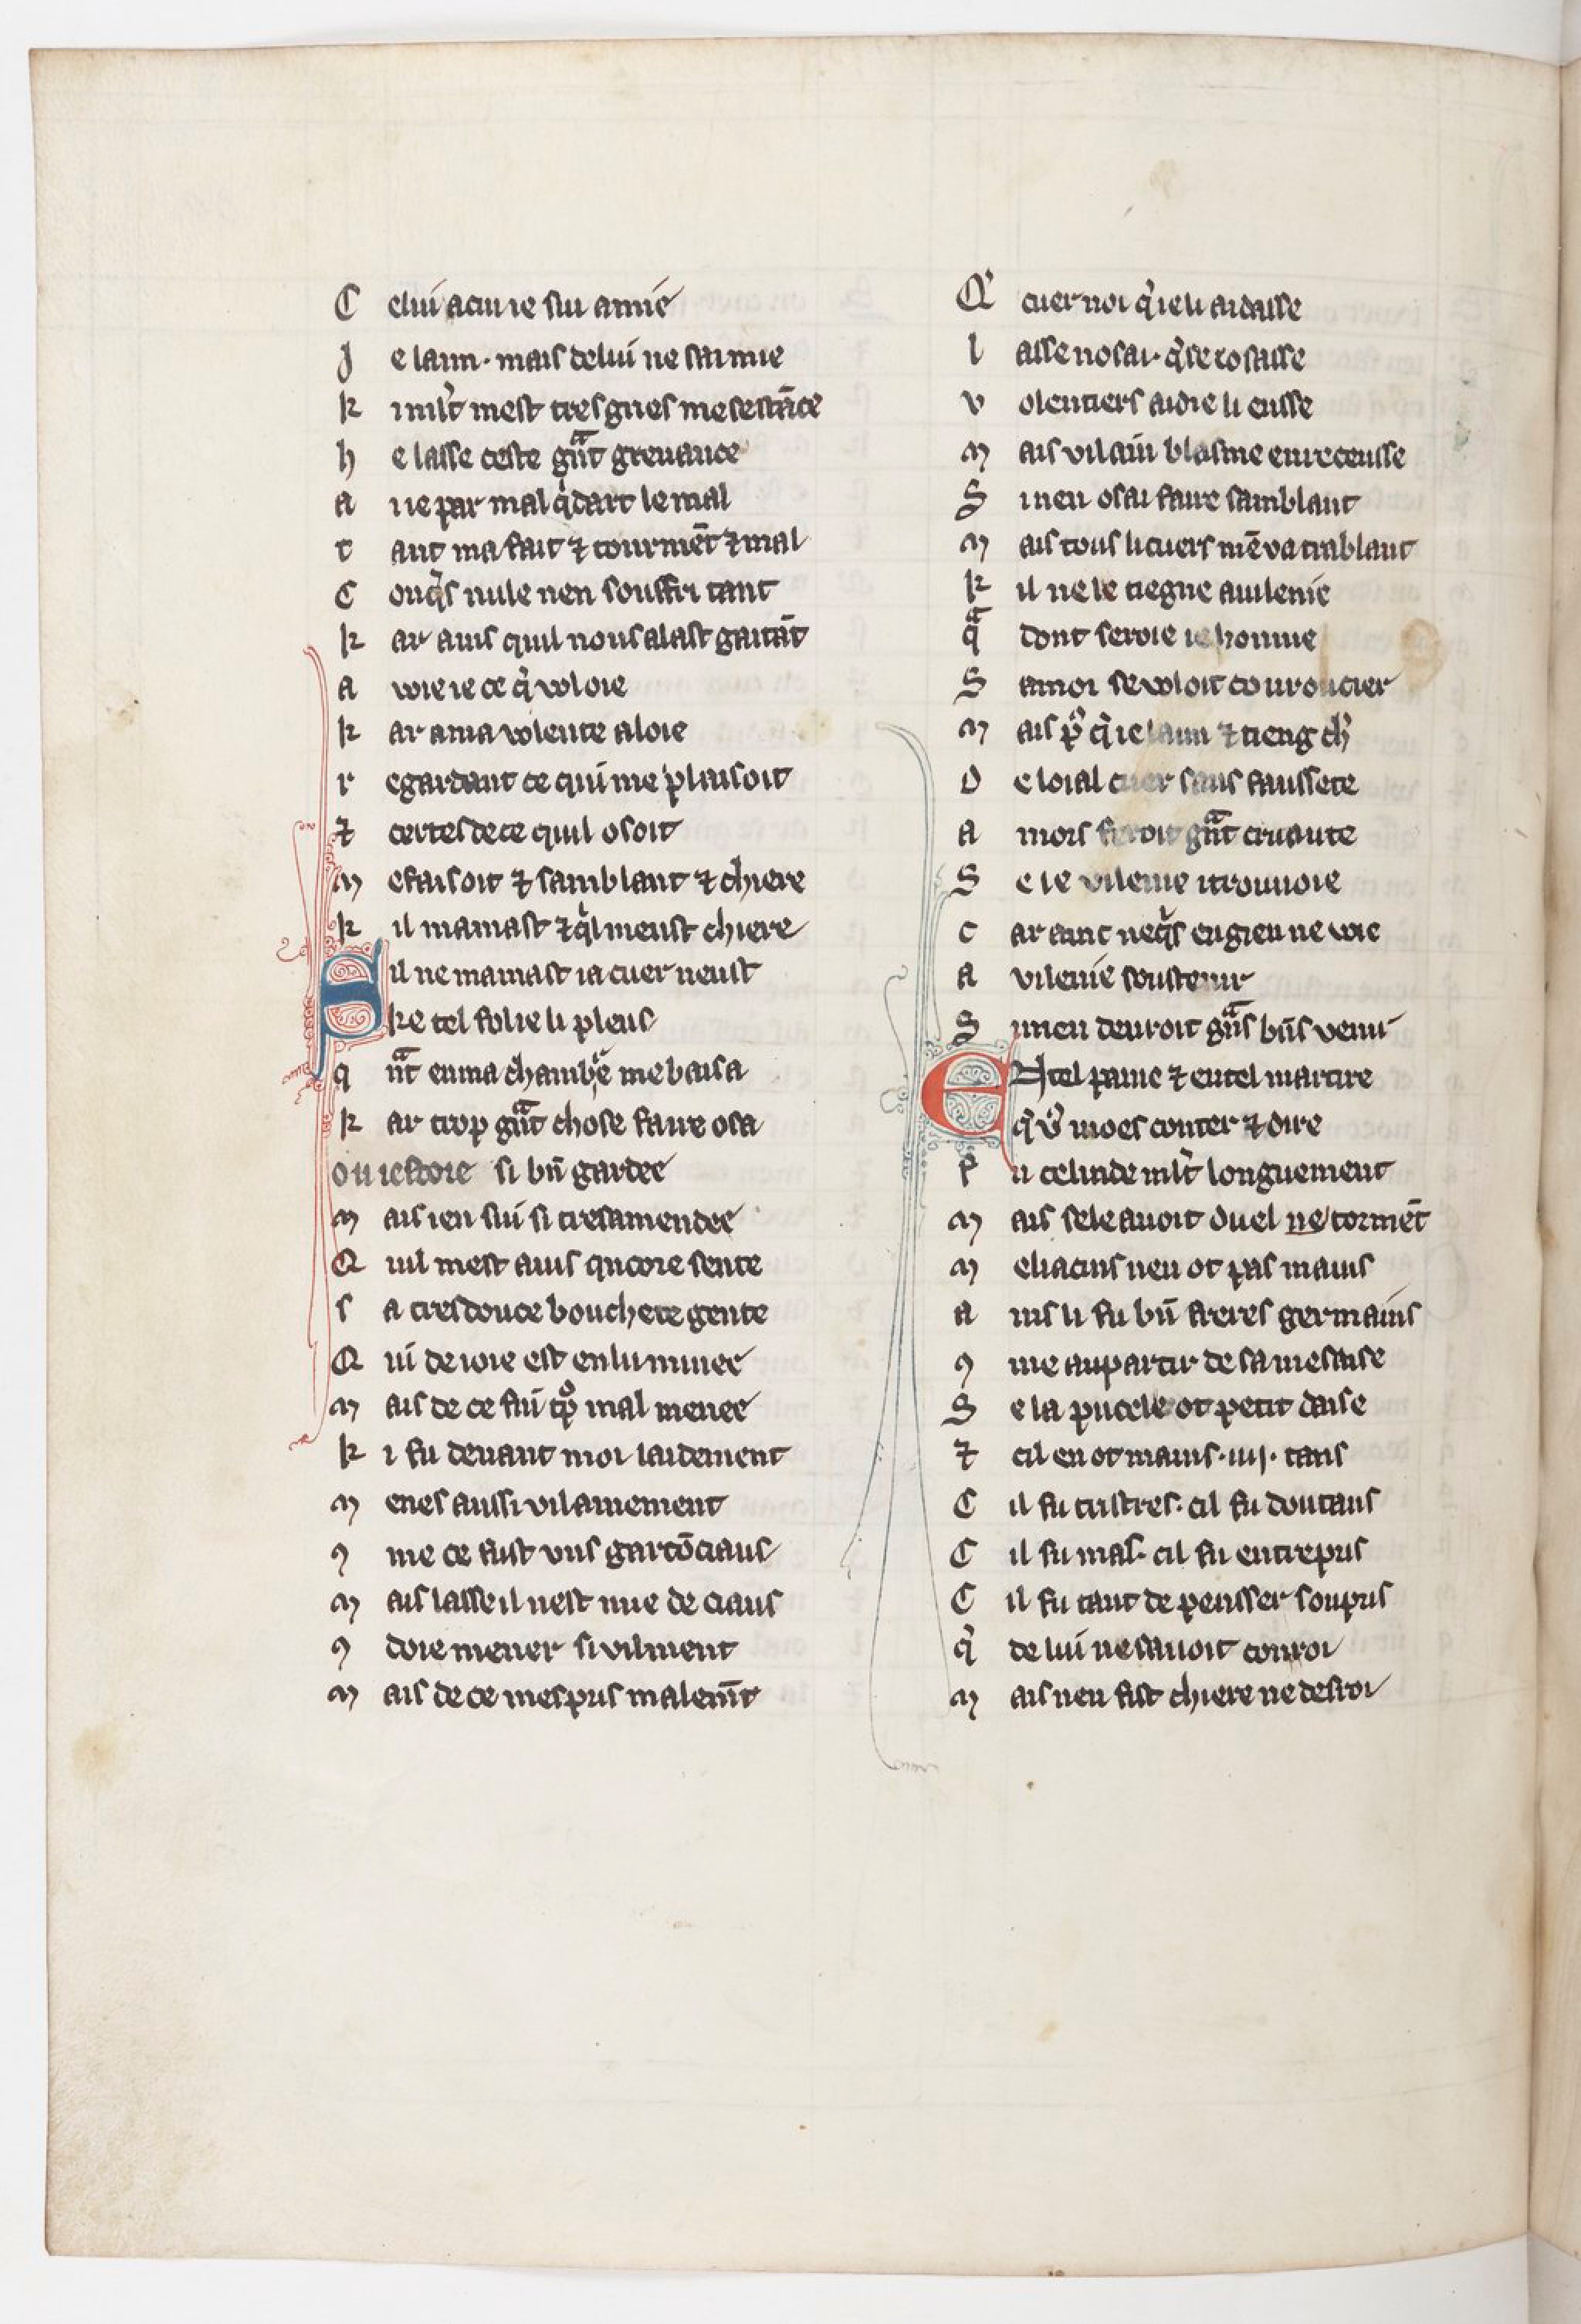 C elui acui ie sui amie
J e laim · mais delui ne sai mie
k i mlt' mest tres gries mesestāce
h e lasse ceste gnͣt greuance
a ne par mal q̇ dart le mal
t ant ma fait ⁊ tourmēt ⁊ mal
C onq̇s nule nen souffri tant
k ar auis quil nous alast gaitāt
a voie ie ce q̇ voloie
k ar ama volente aloie
r egardant ce qui me plaisoit
⁊ certes de ce quil osoit
M e faisoit ⁊ samblant ⁊ chiere
k il mamast ⁊ q̇l meust chiere
S il ne mamast ia cuer neust
ke tel folie li pleust
q nͣt en ma chambͤe me baisa
k ar trop gnͣt chose faire osa
ou iestoie si bn̄ gardee
M ais ien sui si tres amendee
Q uil mest auis qncore sente
s a tres douce bouchete gente
Q ui de ioie est enluminee
M ais de ce fui tͦp mal menee
k i fu deuant moi laidement
M enes aussi vilainement
ꝯ me ce fust vns garcōciaus
M ais lasse il nest mie de ciaus
ꝯ doie mener si vilment
M ais de ce mespris malemn̄t
Q' cuer noi q̇ ie li aidasse
l asse nosai · q̇ se iosasse
v olentiers aidie li eusse
M ais vilain blasme en receusse
S i nen osai faire samblant
M ais tous li cuers mē va tmblant
k il ne le tiegne a vilenie
qͣ dont seroie ie honnie
S amoi se voloit couroucier
M ais pͦ q̇ ie laim ⁊ tieng ch'
D e loial cuer sans faussete
A mors feroit gnͣt cruaute
S e ie vilenie i trouuoie
C ar ainc neq̇s engieu ne voie
A vilenie soustenir
S i men deuroit gnͣs bn̄s venir
E N tel paine ⁊ en tel martire
q̇ v' moes conter ⁊ dire
F u celinde mlt' longuement
M ais sele auoit duel ne tormēt
M eliacins nen ot pas mains
A ins li fu bn̄ freres germains
ꝯ me au partir de sa mesaise
S e la pucele ot petit daise
⁊ cil en ot mains · iiij · tans
C il fu tristres · cil fu doutans
C il fu mas · cil fu entrepris
C il fu tant de pensser soupris
q̇ de lui ne sauoit conroi
M ais nen fist chiere ne desroi